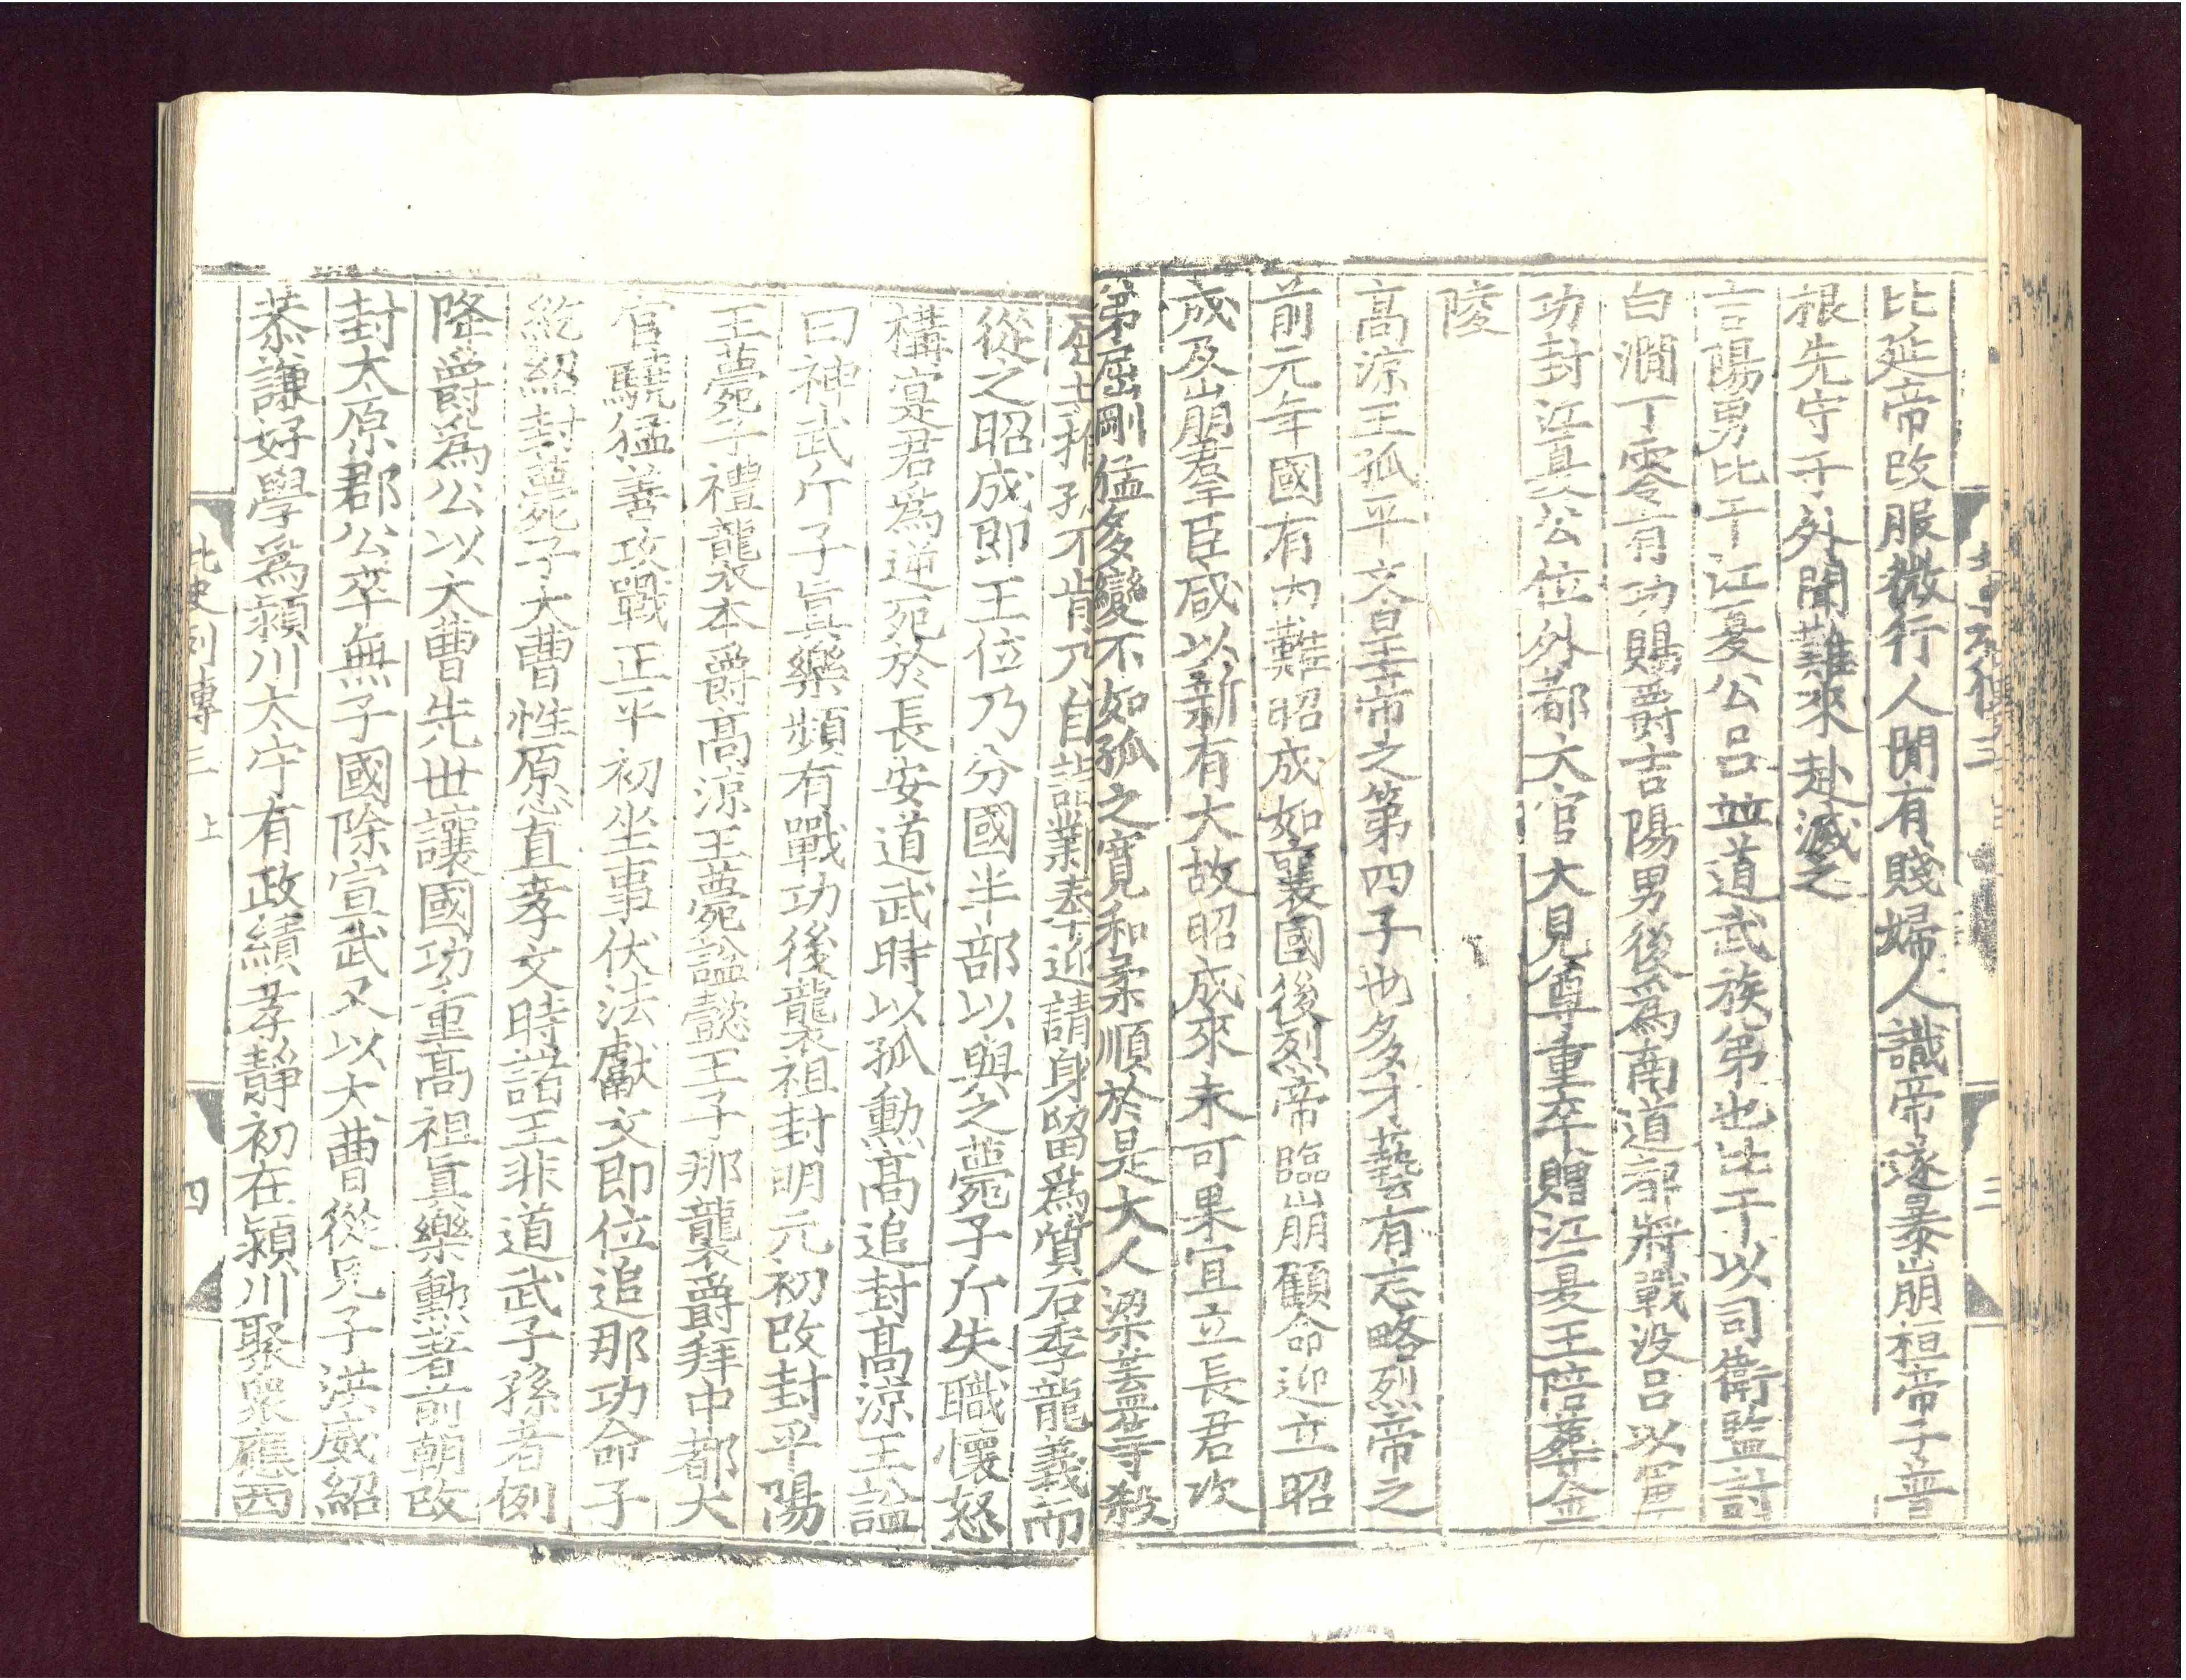 比延帝改服微行人閒有賤婦人識帝遂暴崩桓帝子普
根先守于外聞難來赴滅之
吉陽男比干江夏公呂並道武族弟也比干以司衛監討
白澗丁零有功賜爵吉陽男後爲南道都將戰没呂以軍
功封江夏公位外都大官大見尊重卒贈江夏王陪葬金
陵
高涼王孤平文皇帝之第四子也多才藝有志略烈帝之
前元年國有内難昭成如襄國後烈帝臨崩顧命迎立昭
成及崩羣臣咸以新有大故昭成來未可果宜立長君次
弟屈剛猛多變不如孤之寛和柔順於是大人梁蓋等殺
屈共推孤不肯乃自詣鄴奉迎請身留爲質石季龍義而
從之昭成即王位乃分國半部以與之薨子斤失職懷怒
構寔君爲逆死於長安道武時以孤勲高追封高涼王謚
曰神武斤子眞樂頻有戰功後襲祖封明元初改封平陽
王薨子禮襲本爵高涼王薨謚懿王子那襲爵拜中都大
官驍猛善攻戰正平初坐事伏法獻文即位追那功命子
紇紹封薨子大曹性愿直孝文時諸王非道武子孫者例
降爵爲公以大曹先世讓國功重高祖眞樂勲著前朝改
封太原郡公卒無子國除宣武又以大曹從兄子洪威紹
恭謙好學爲潁川太守有政績孝靜初在潁川聚衆應西
北史列傳三 上 四